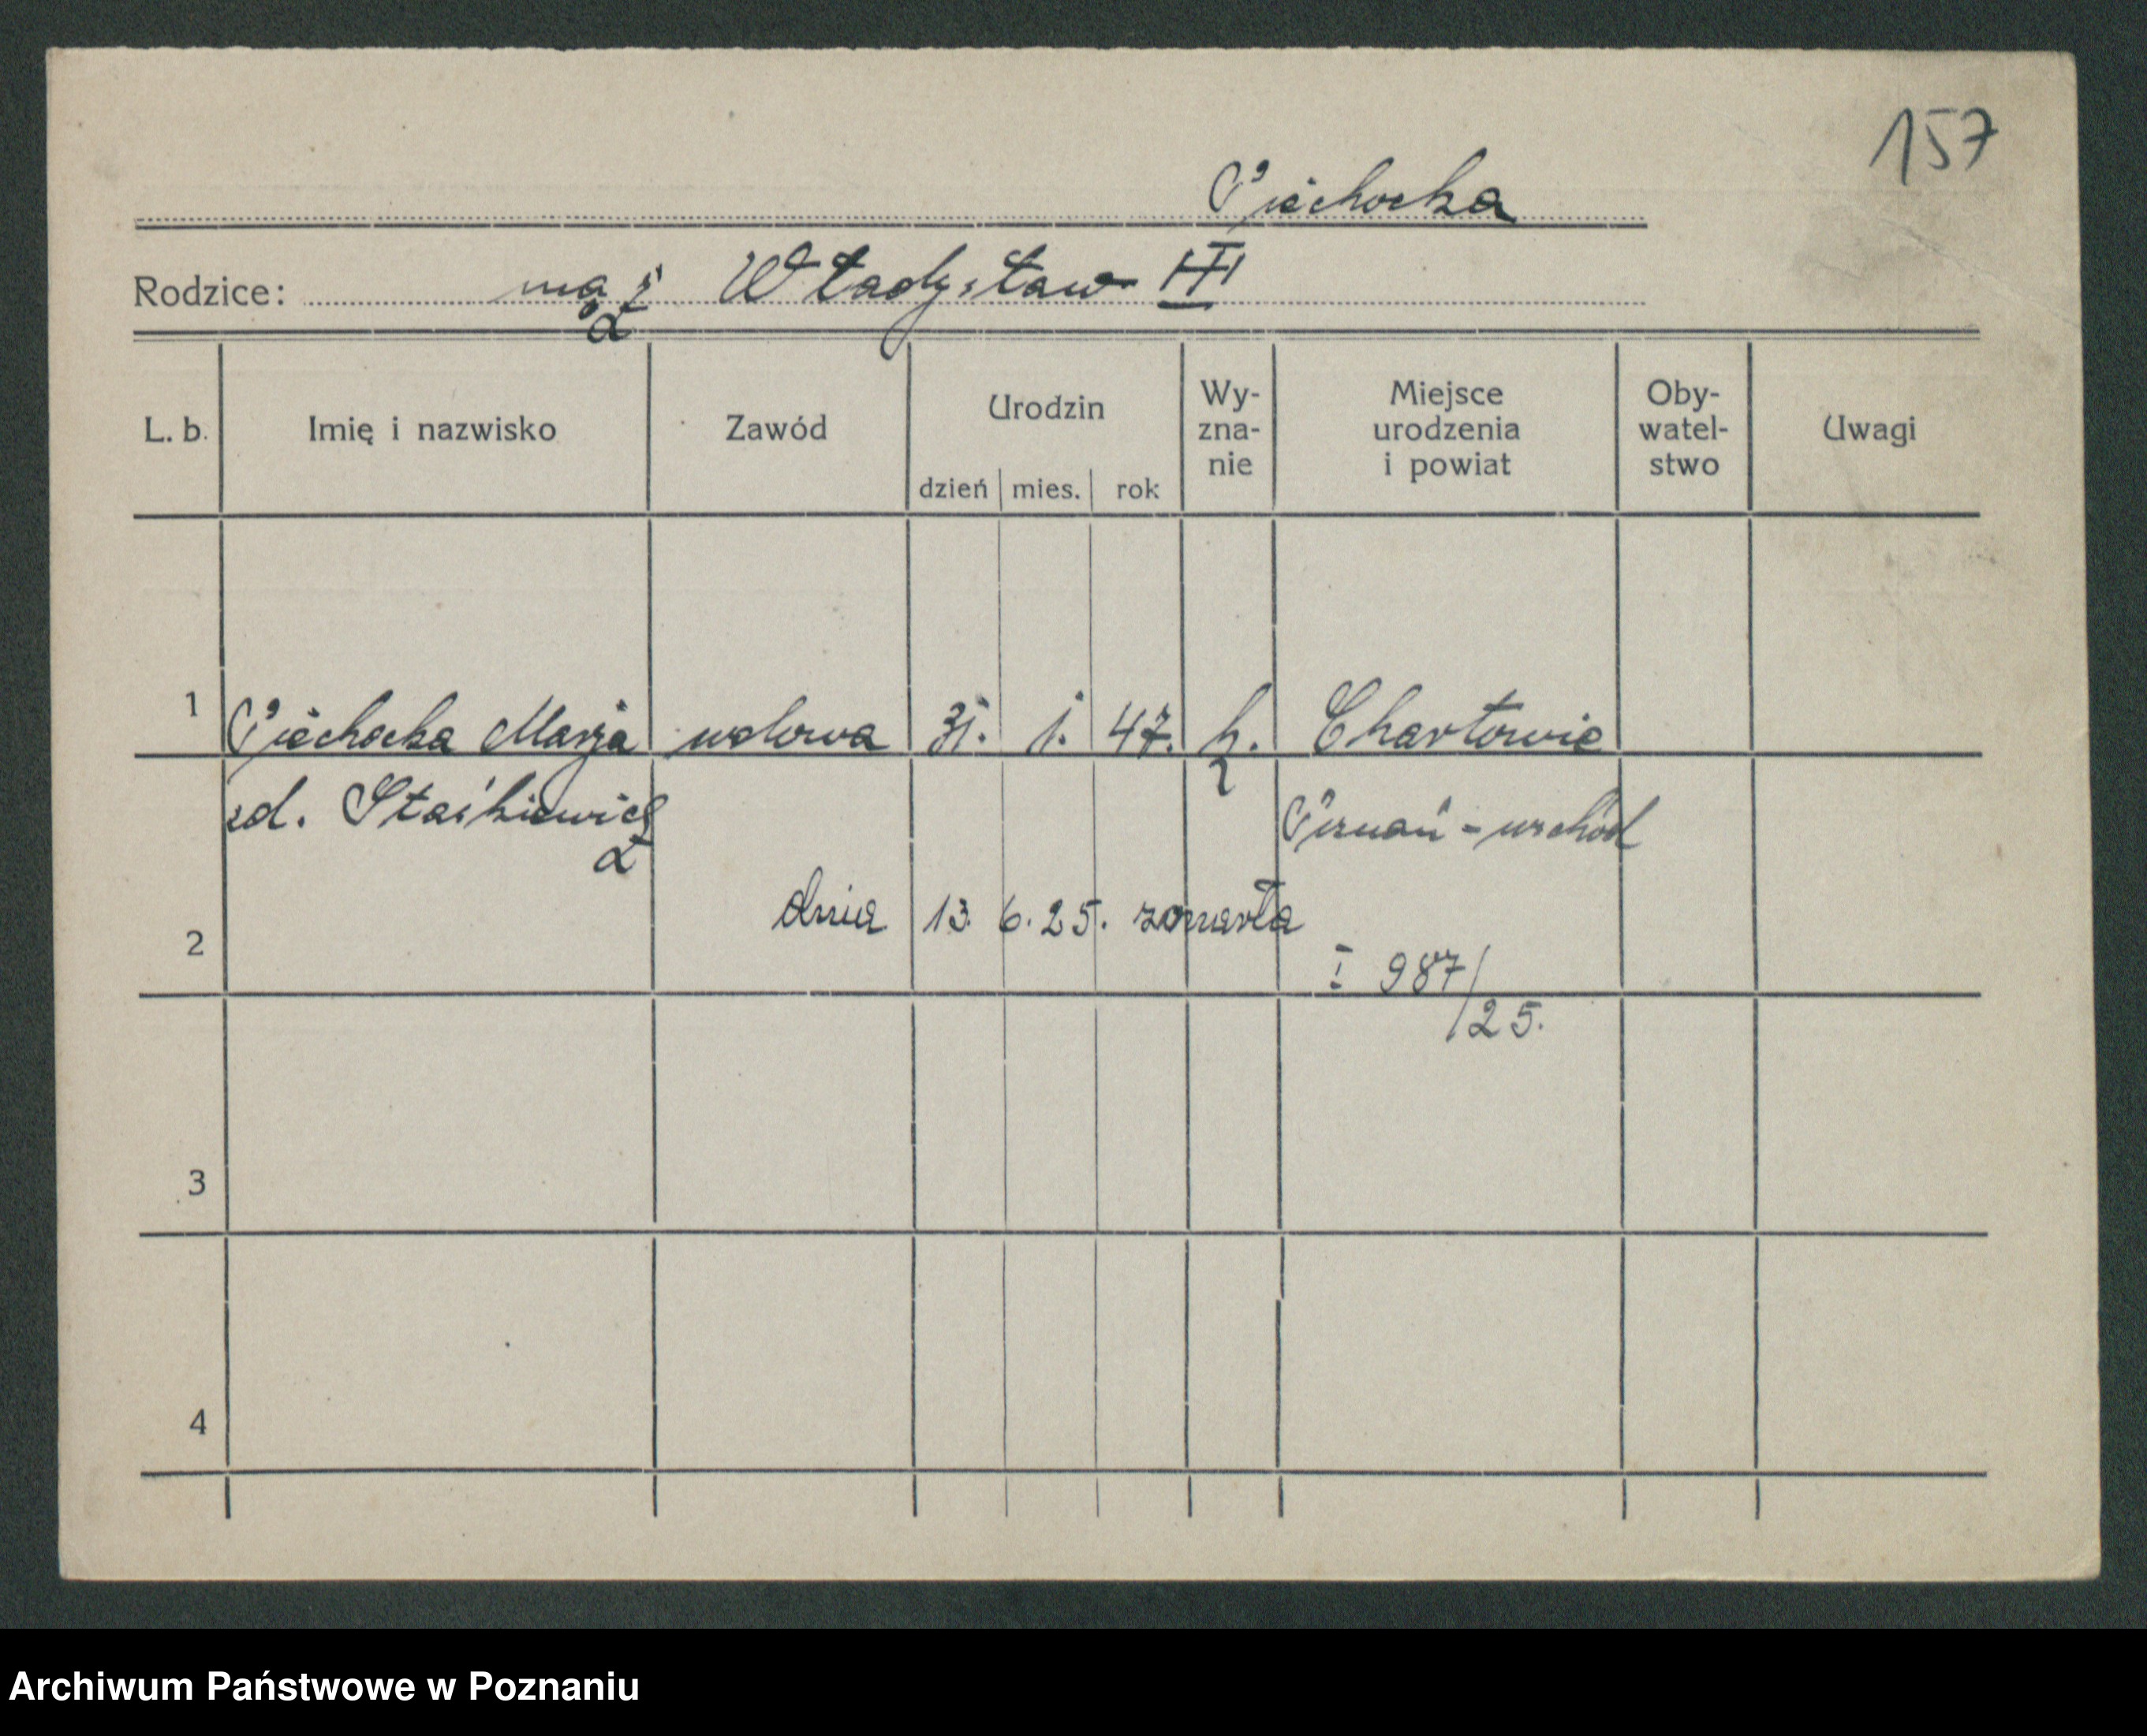 157
Piechocka
Rodzice: mąż Władysław III
L. b. Imię i nazwisko Zawód Urodzin dzień mies. rok Wy-zna-nie Miejsce urodzenia i powiat Oby-watel-stwo Uwagi
1 Piechocka Marja wdowa 31. 1. 47. k. Chartowie
zd. Staśkiewicz Poznań - wschód
2 dnia 13. 6. 25. zmarła
I 987/25.
3
4
Archiwum Państwowe w Poznaniu